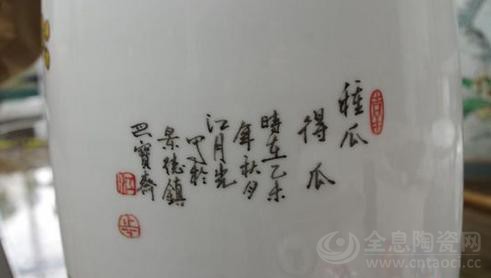 種瓜
得瓜
時在乙未
年秋月
江月光
写於
景德鎮
四寶齋
全息陶瓷网
www.cntaoci.cc